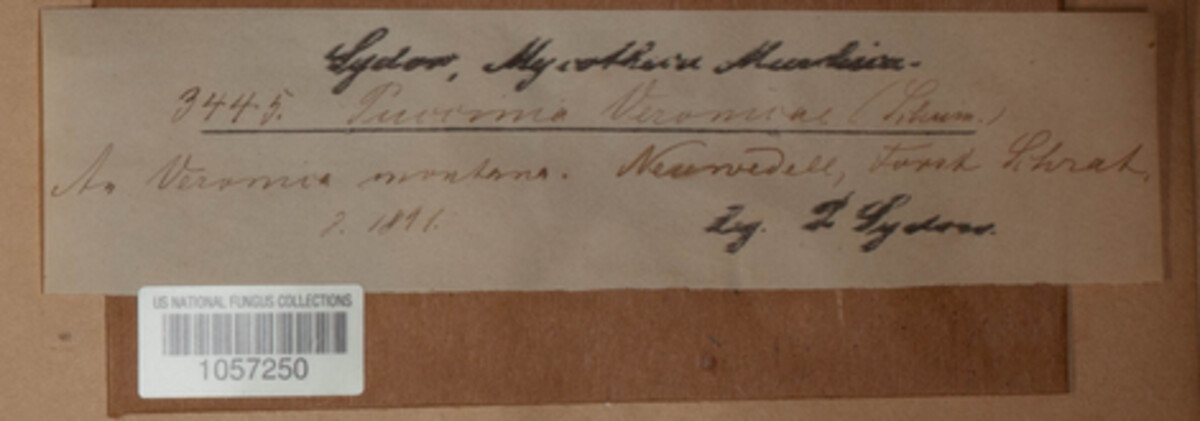 Sydow, Mycotheca Marchica.
3445. Puccinia Veronicae (Schum.)
An Veronica montana. Neuwedell, Forst Schrat.
7. 1891.
Leg. P Sydow.
US NATIONAL FUNGUS COLLECTIONS
1057250